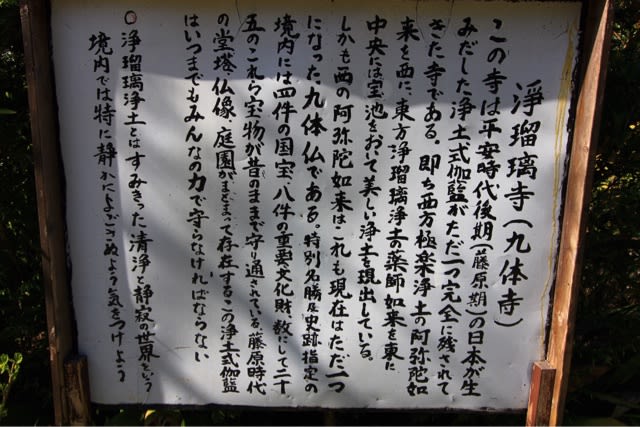 浄瑠璃寺(九体寺)
この寺は平安時代後期(藤原期)の日本が生
みだした浄土式伽藍がただ一つ完全に残されて
きた寺である。即ち西方極楽浄土の阿弥陀如
来を西に、東方浄瑠璃浄土の薬師如来を東に
中央には宝池をおいて美しい浄土を現出している。
しかも西の阿弥陀如来はこれも現在はただ一つ
になった九体仏である。特別名勝及史跡指定の
境内には四件の国宝、八件の重要文化財、数にして二十
五のこれら宝物が昔のままで守り通されている。藤原時代
の堂塔、仏像、庭園がまとまって存在するこの浄土式伽藍
はいつまでもみんなの力で守らなければならない
○浄瑠璃浄土とはすみきった清浄、静寂の世界をいう
境内では特に静かによごさぬよう気をつけよう